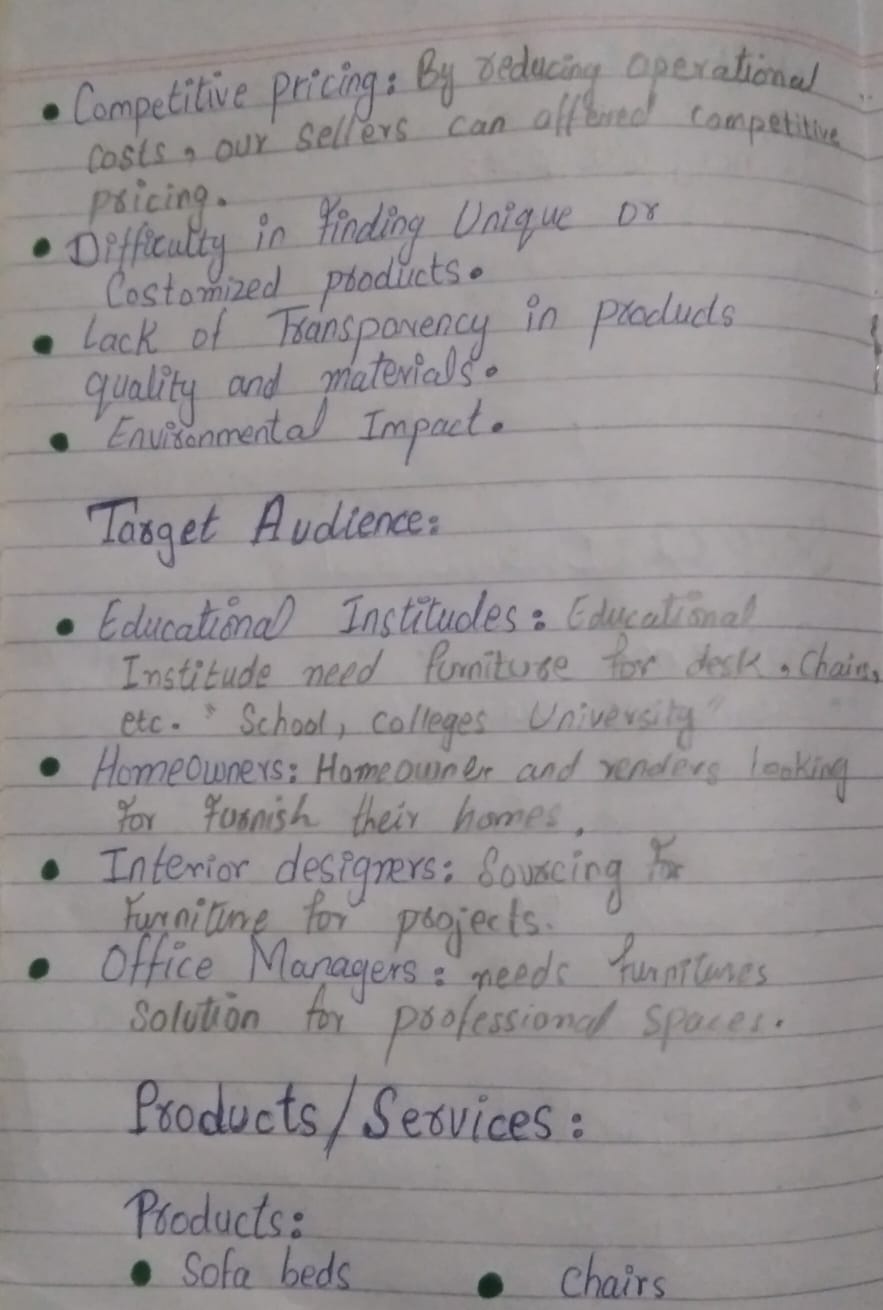 • Competitive pricing: By reducing operational
costs, our sellers can offered competitive
pricing.
• Difficulty in finding Unique or
Costomized products.
• Lack of Transparency in products
quality and materials.
• Environmental Impact.
Target Audience:
• Educational Institudes: Educational
Institude need furniture for desk, Chairs,
etc. "School, colleges University"
• Homeowners: Homeowner and renders looking
for furnish their homes.
• Interior designers: Sourcing for
furniture for projects.
• Office Managers: needs furnitures
solution for professional spaces.
Products/Services:
Products:
• Sofa beds • Chairs